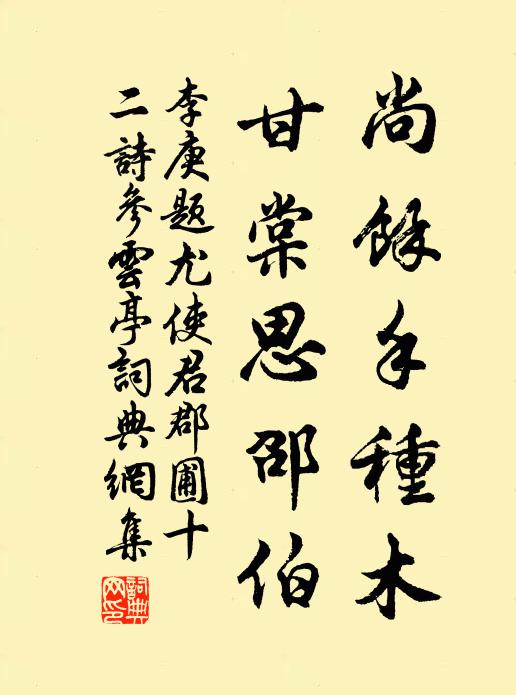 尚餘手種木
甘棠思邵伯
李庚題尤使君郡圃十
二詩參雲亭詞典網集